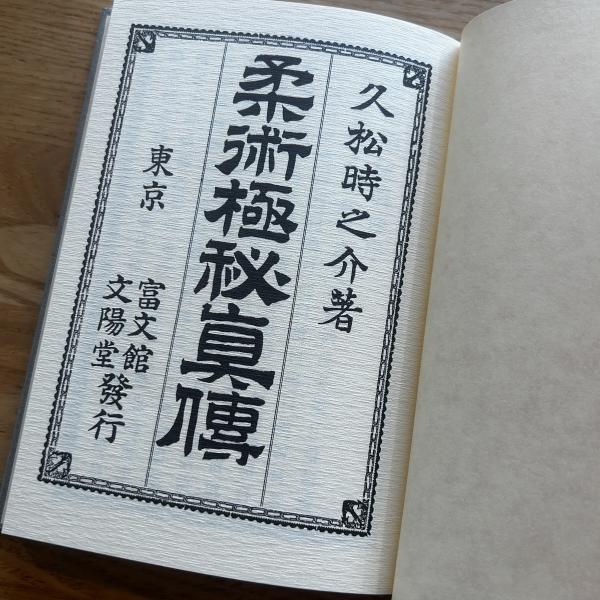 久松時之介著
柔術極秘真傳
東京
富文館
文陽堂發行